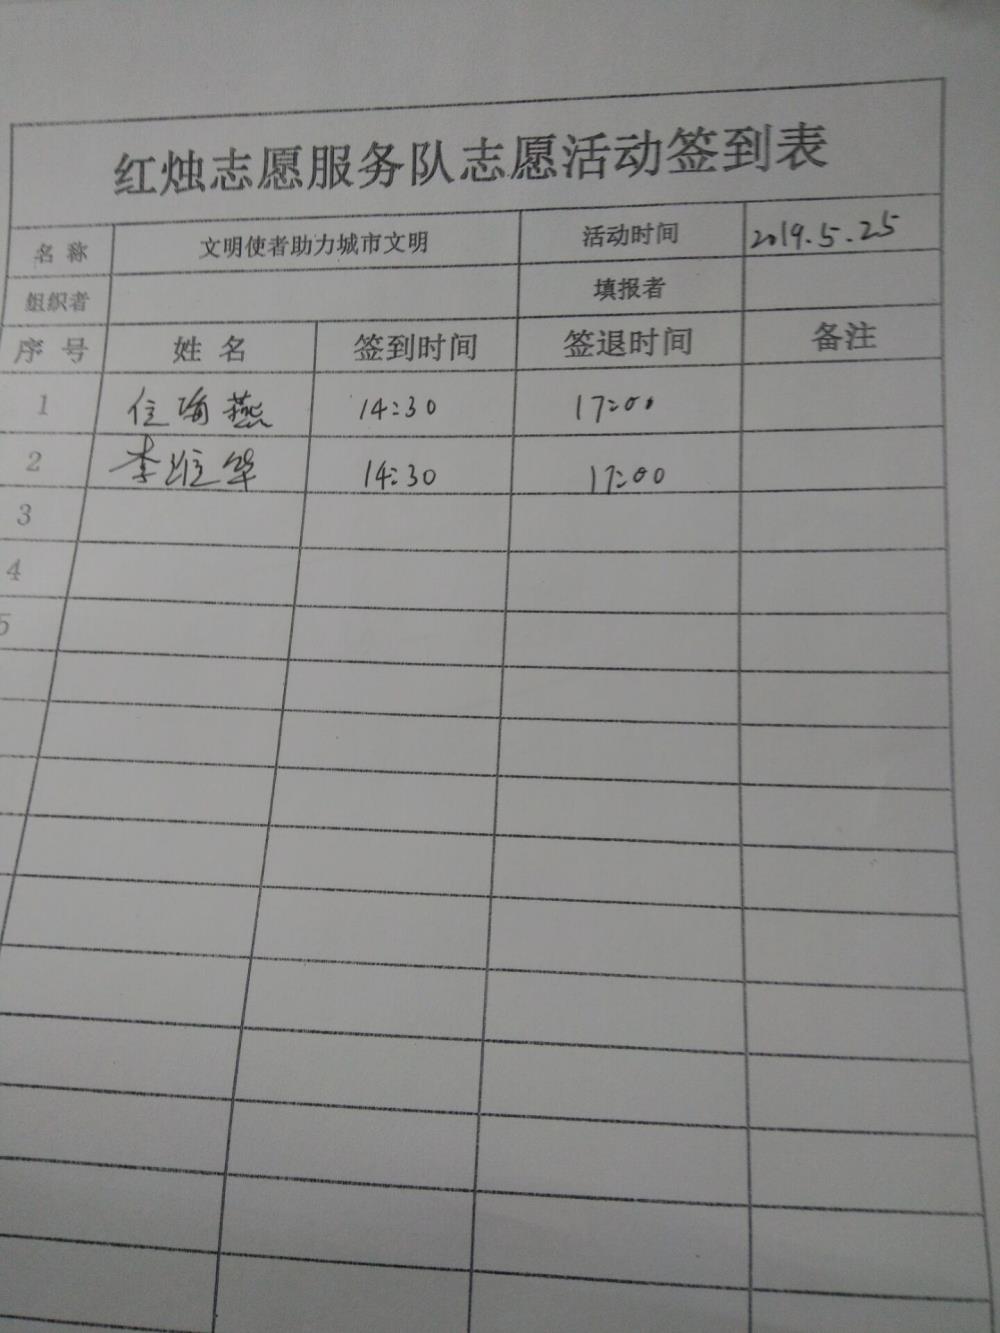 红烛志愿服务队志愿活动签到表
名 称 文明使者助力城市文明 活动时间 2019.5.25
组织者 填报者
序 号 姓 名 签到时间 签退时间 备注
1 任海燕 14:30 17:00
2 李维华 14:30 17:00
3
4
5